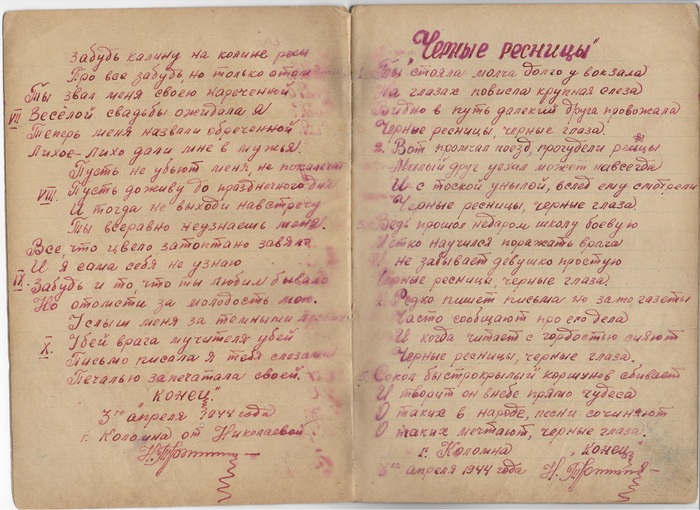 Забудь калину на калине росы
Про все забудь, но только отомсти
Ты звал меня своею нареченной
VII. Весёлой свадьбы ожидала я
Теперь меня назвали обреченной
Лихое-Лихо дали мне в мужья.
Пусть не убьют меня, не покалечат
VIII. Пусть доживу до празднечного дня
И тогда не выходи навстречу
Ты всеравно неузнаешь меня.
Все, что цвело затоптано завяло
И я сама себя не узнаю
IX. Забудь и то, что ты любил бывало
Но отомсти за молодость мою.
Услыш меня за темными
X. Убей врага мучителя убей
Письмо писала я тебе слезами
Печалью запечатала своей.
"Конец."
3го апреля 1944 года
г. Коломна от Николаевой
"Черные ресницы"
Ты стояла молча долго у вокзала
На глазах повисла крупная слеза
Видно в путь далекий друга провожала
Черные ресницы, черные глаза.
2. Вот промчал поезд, прогудели рельцы
Милый друг уехал может навсегда
И с тоской унылой, вслед ему смотрели
Черные ресницы, черные глаза.
3. Ведь прошол недаром школу боевую
Метко научился поражать врага
И не забывает девушко простую
Черные ресницы, черные глаза.
4. Редко пишет письма но зато газеты
Часто сообщают про его дела
И когда читает с гордостью сияют
Черные ресницы, черные глаза.
5. Сокол быстрокрылый коршунов сбивает
И творит он внебе прямо чудеса
О таких в народе, песни сочиняют
О таких мечтают, черные глаза.
г. Коломна "Конец"
3го апреля 1944 года